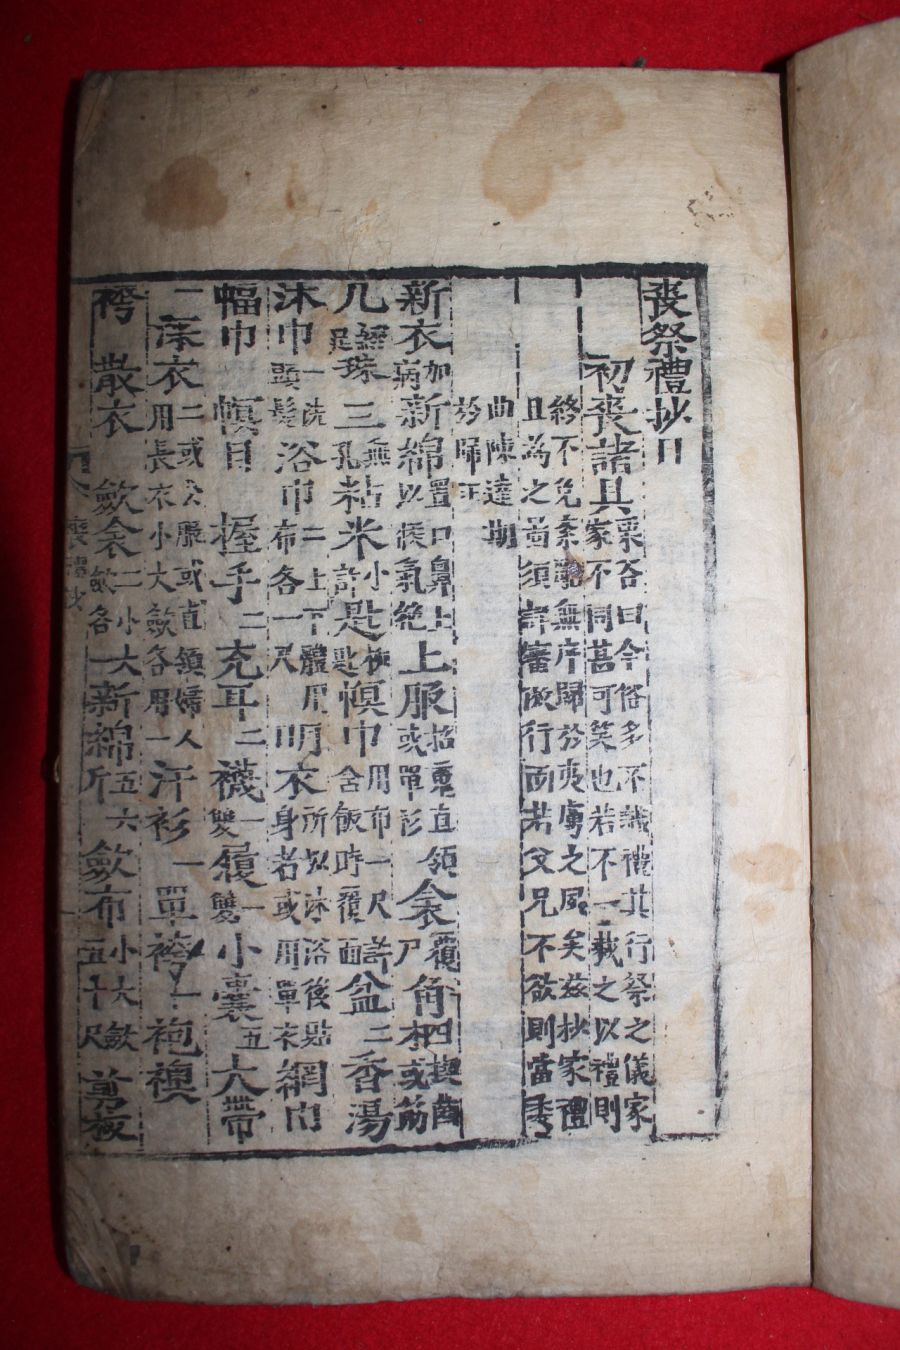 喪祭禮抄目
初喪諸具 栗谷曰今俗多不識禮其行祭之儀家
家不同甚可笑也若不一裁之以禮則
終不免紊亂無序歸於夷虜之風矣茲抄家禮
且爲之圖須詳審倣行而若父兄不欲則當委
曲陳達期
於歸正
新衣 加病 新綿 置口鼻上以俟氣絶 上服 或單衫 招 直領 衾 覆尸 角柶 或筯 楔齒
几 綴足 珠三 無孔 粘米 小許 匙 幎巾 用布一尺許 含飯時覆面 盆二 香湯
沐巾 一洗頭髮 浴巾 二上下體用布各一尺 明衣 所以沐浴後貼身者或用單衣 網巾
幅巾 幎目 握手二 充耳二 襪一雙 履一雙 小囊五 大帶
一 深衣 二或公服或直領婦人用長衣小大斂各用一 汗衫一 單袴一 袍襖
袴 散衣 斂衾 二小大斂各一 新綿 五六斤 斂布 小大斂五十尺